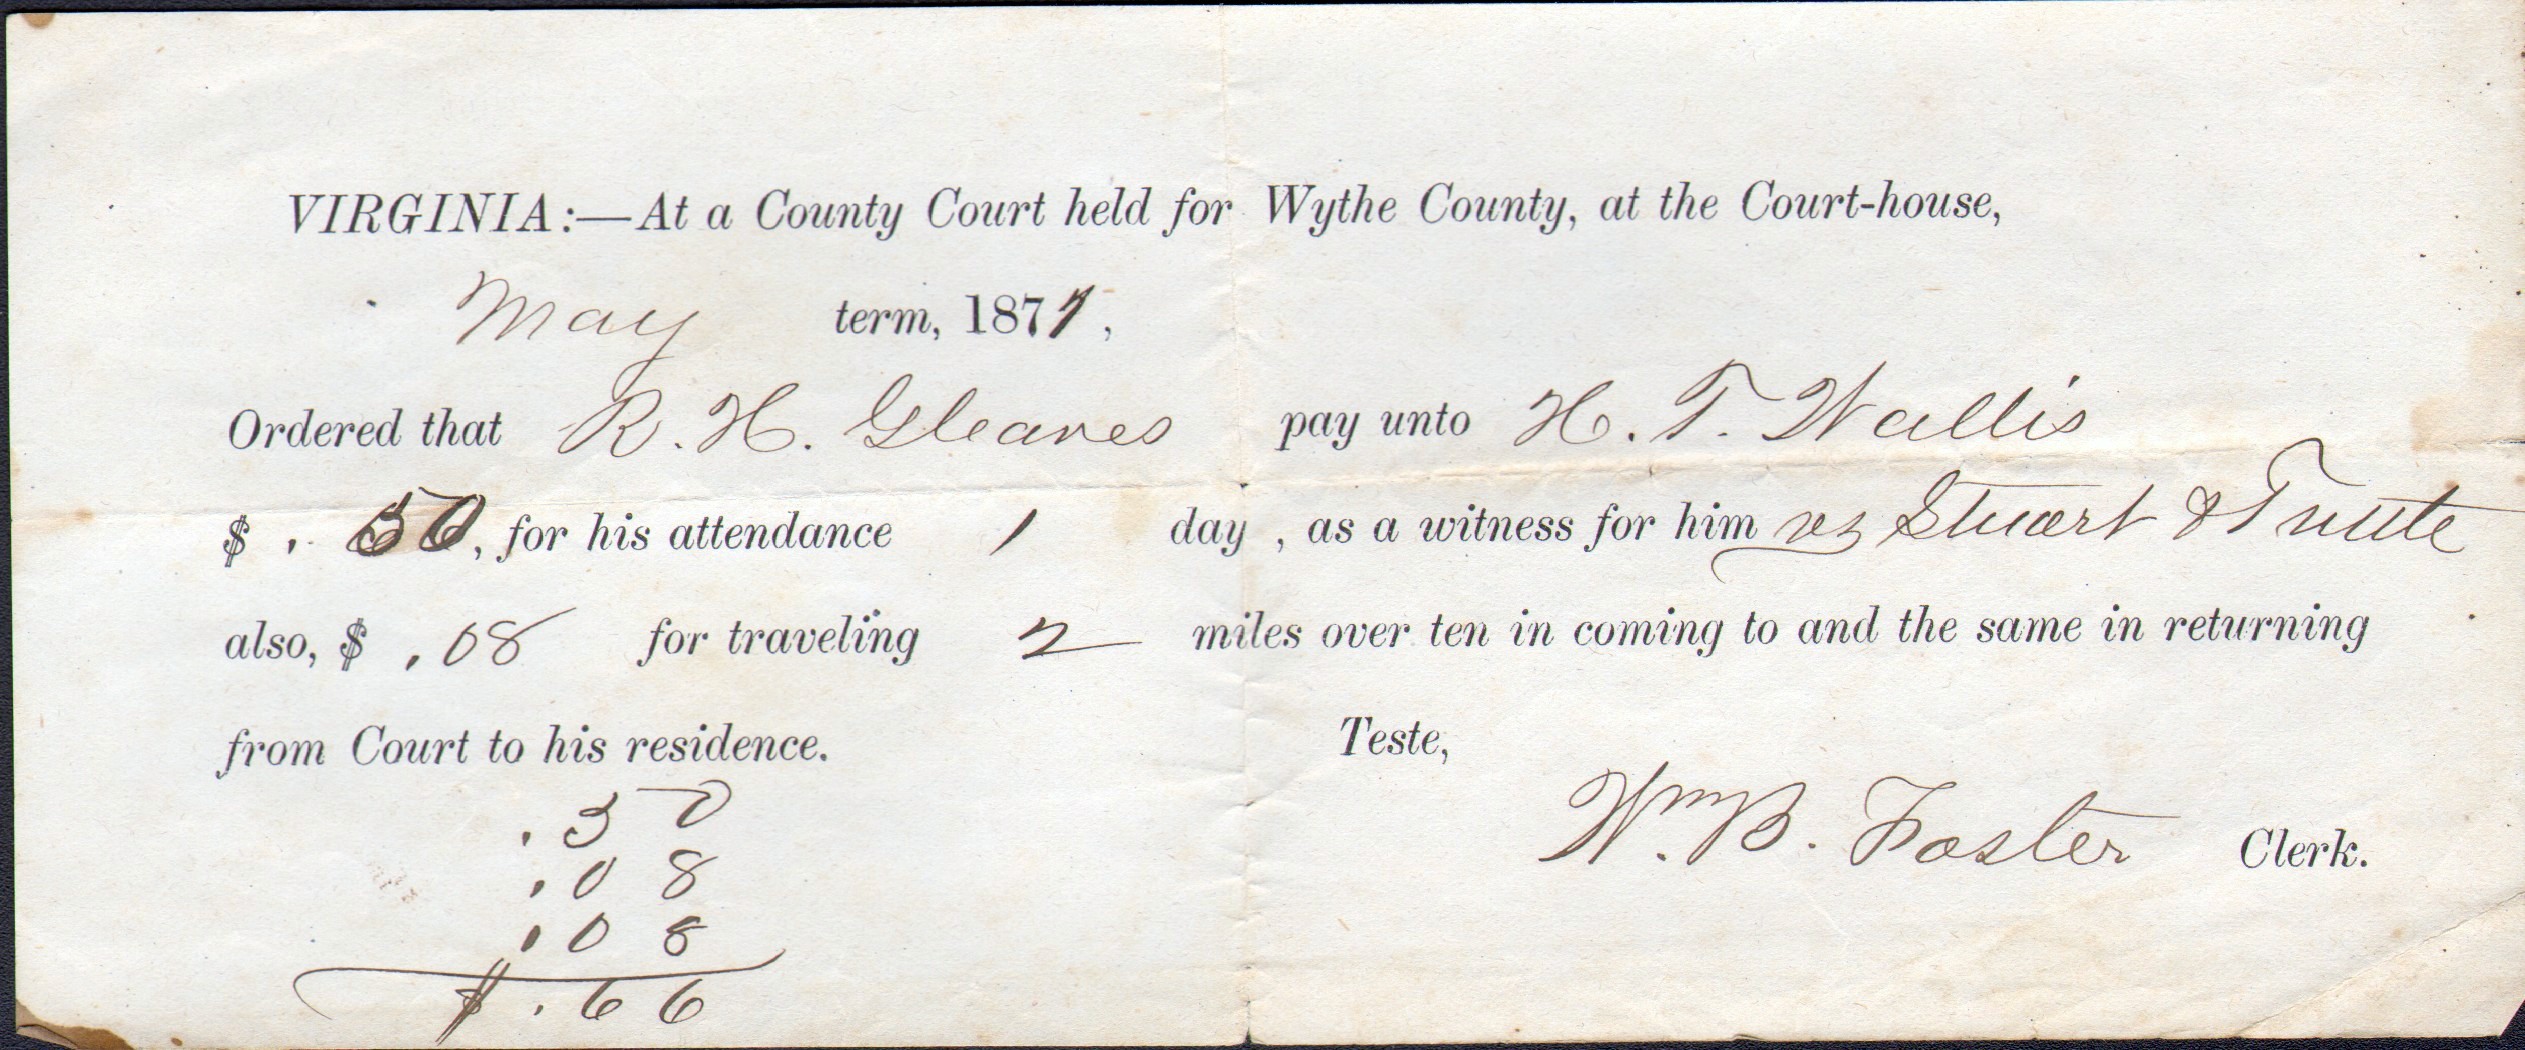 VIRGINIA:—At a County Court held for Wythe County, at the Court-house,
May term, 1871,
Ordered that R. H. Gleaves pay unto H. T. Wallis
$ .50, for his attendance 1 day , as a witness for him vs Stuart &
also, $ .08 for traveling 2 miles over ten in coming to and the same in returning
from Court to his residence. Teste,
Wm B. Foster Clerk.
.50
.08
.08
$ .66